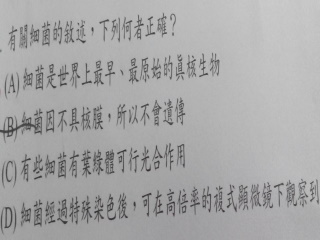 . 有關細菌的敘述，下列何者正確？
(A) 細菌是世界上最早、最原始的真核生物
(B) 細菌因不具核膜，所以不會遺傳
(C) 有些細菌有葉綠體可行光合作用
(D) 細菌經過特殊染色後，可在高倍率的複式顯微鏡下觀察到